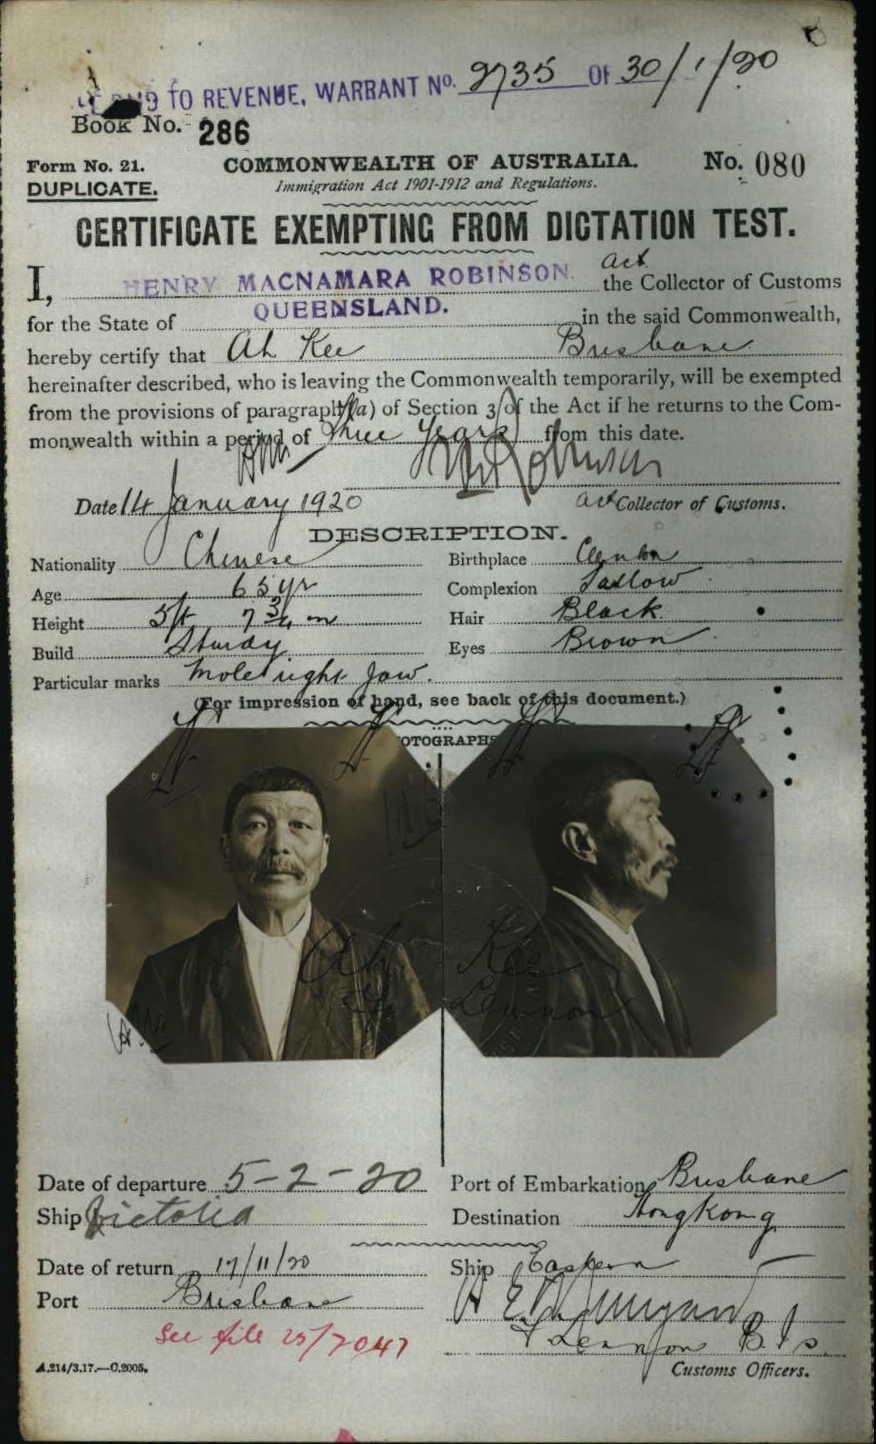 TO REVENUE, WARRANT No. 2735 OF 30/1/20
Book No. 286
Form No. 21. COMMONWEALTH OF AUSTRALIA. No. 080
DUPLICATE. Immigration Act 1901-1912 and Regulations.
CERTIFICATE EXEMPTING FROM DICTATION TEST.
I, HENRY MACNAMARA ROBINSON. act the Collector of Customs
for the State of QUEENSLAND. in the said Commonwealth,
hereby certify that Ah Kee Brisbane
hereinafter described, who is leaving the Commonwealth temporarily, will be exempted
from the provisions of paragraph (a) of Section 3 of the Act if he returns to the Com-
monwealth within a period of Three Years from this date.
Date 14 January 1920 act Collector of Customs.
DESCRIPTION.
Nationality Chinese Birthplace Canton
Age 65 yr Complexion Sallow
Height 5ft 7 3/4 in Hair Black
Build Sturdy Eyes Brown
Particular marks Mole right Jaw.
(For impression of hand, see back of this document.)
OTOGRAPHS
Ah Kee
Lennon
Date of departure 5-2-20 Port of Embarkation Brisbane
Ship Victoria Destination HongKong
Date of return 17/11/20 Ship Eastern
Port Brisbane
See file 25/7047
Lennon
A.214/3.17.—C.2005. Customs Officers.